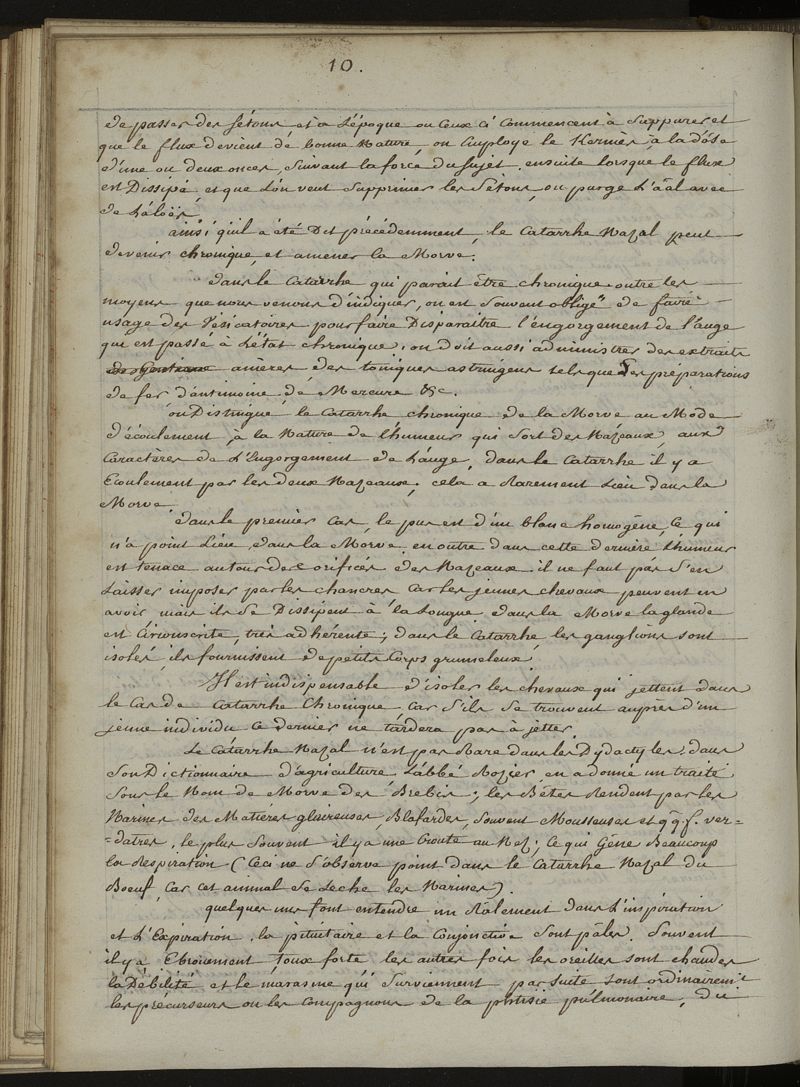 10.
de passer des sétons et à l'époque ou ceux ci commencent à suppurer et
que le flux devient de bonne nature, on employe le Kermès, à la dôse
d'une ou deux onces, suivant la force du sujet, ensuite lorsque le flux
est dissipé, et que l'on veut supprimer les sétons, on purge l'aâl avec
de l'alöës.
ainsi qu'il a été dit précédemment, le catarrhe nazal peut
devenir chronique et amener la morve.
dans le catarrhe qui parait être chronique outre les
moyens que nous venons d'indiquer, on est souvent obligé de faire
usage des vésicatoires pour faire disparaitre l'engorgement de l'auge
qui est passé à l'état chronique, on doit aussi administrer des extraits
de Gentiane amères des toniques astringens tels que des préparations
de fer d'antimoine de mercure &c.
on distingue le catarrhe chronique de la morve au mode
d'écoulement, à la nature de l'humeur qui sort des nazeaux, aux
caractères de l'engorgement de l'auge, dans le catarrhe il y a
écoulement par les deux nazeaux, cela a rarement lieu dans la
morve.
dans le premier cas, le pus est d'un blanc homogène, ce qui
n'a point lieu dans la morve, en outre dans cette dernière l'humeur
est tenace autour des orifices des nazeaux. il ne faut pas s'en
laisser imposer par les chancres car les jeunes chevaux peuvent en
avoir mais ils se dissipent à la longue, dans la morve la glande
est circonscrite, très adhérente; dans le catarrhe, les ganglions sont
isolés, ils fournissent de petits corps grumeleux.
Il est indispensable d'isoler les chevaux qui jettent dans
le cas de catarrhe chronique, car s'ils se trouvent auprès d'un
jeune individu ce dernier ne tardera pas à jetter.
Le catarrhe nazal n'est pas rare dans les dydactyles, dans
son dictionnaire d'agriculture l'abbé Rozier en a donné un traité
sous le nom de morve des Brebis; les Bêtes rendent par les
narines des matières glaireuses, Blafardes, souvent mousseuses et qq.f. ver-
=dâtres, le plus souvent il y a une croute au nez; ce qui gêne beaucoup
la respiration (ceci ne s'observe point dans le catarrhe nazal du
Boeuf, car cet animal se leche les narines).
quelques uns font entendre un râlement dans l'inspiration
et l'expiration, la pituitaire et la conjonctive sont pâles. souvent
il y a ebrouement toux forte les autres fois les oreilles sont chaudes
la débilité et le marasme qui surviennent par suite sont ordinairemt
les précurseurs ou les compagnons de la phtisie pulmonaire, du